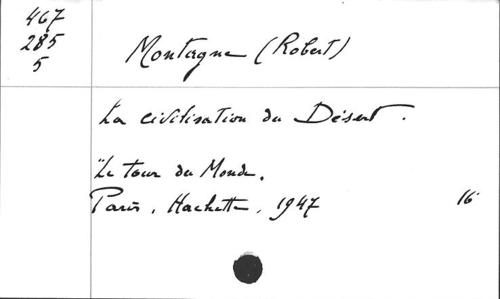 467
285
5
Montagne (Robert)
La civilisation du Désert.
"Le tour du Monde.
Paris, Hachette, 1947 16°